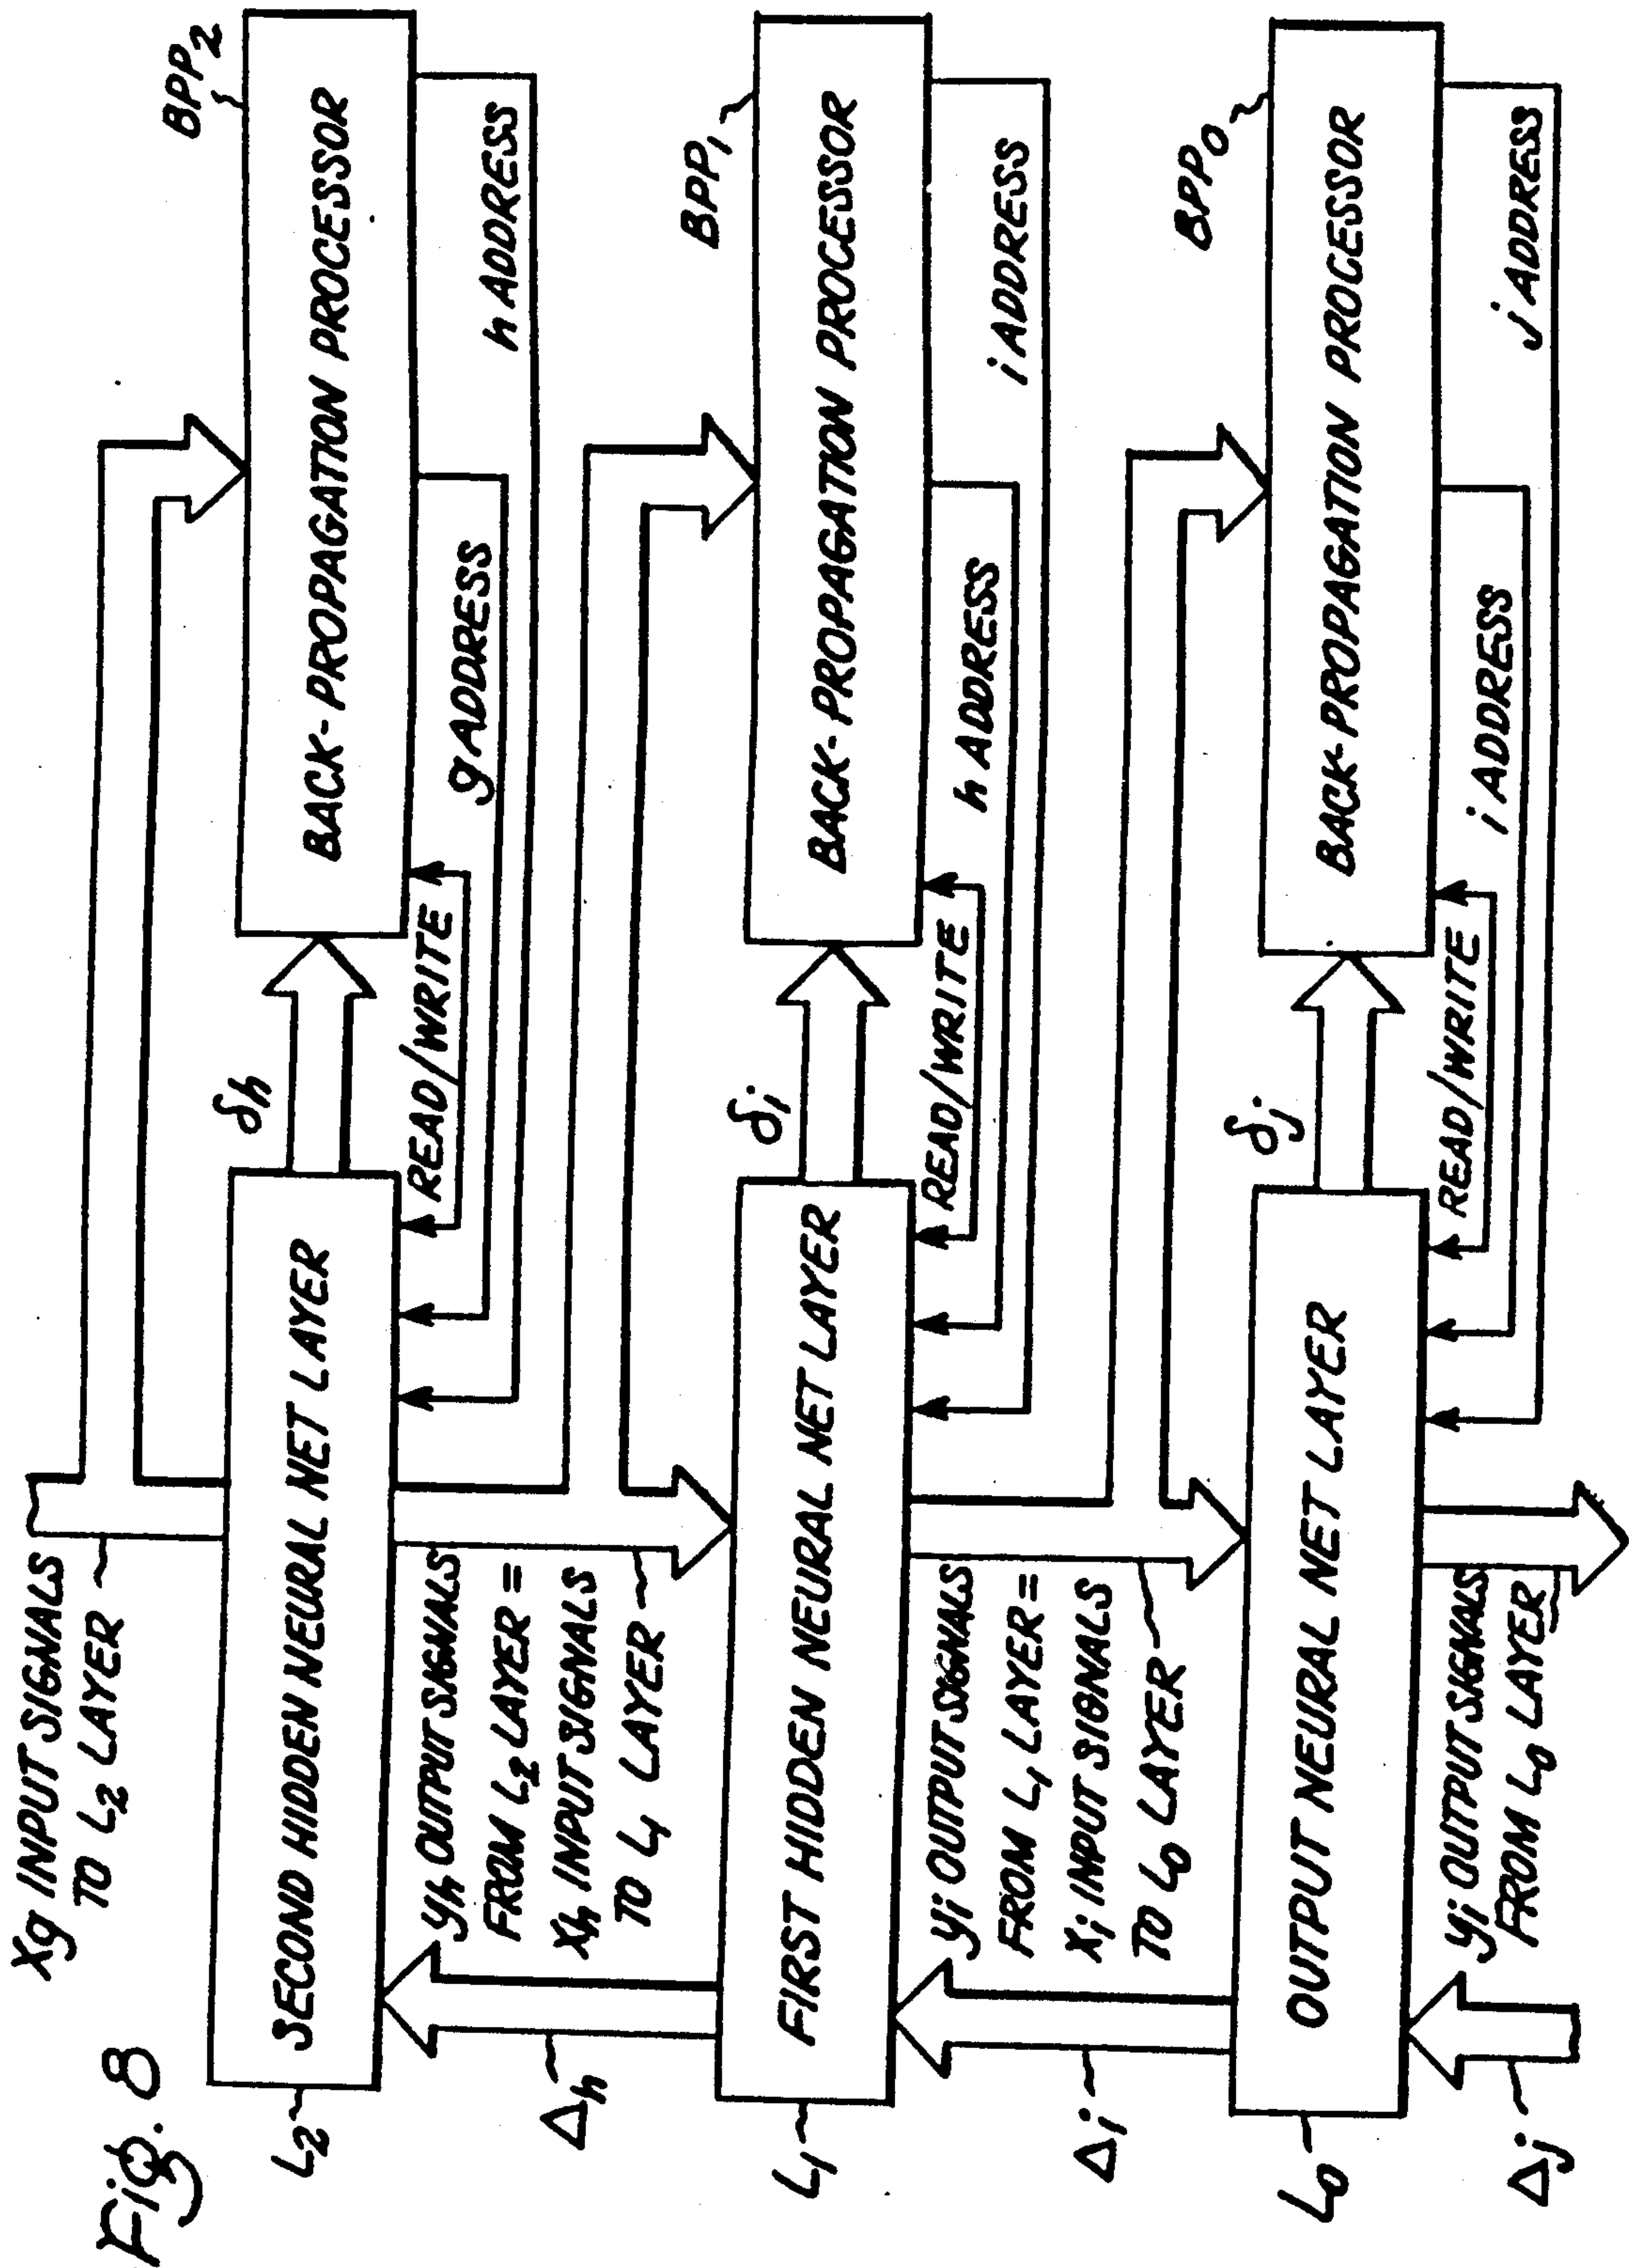 Fig. 8
Xg INPUT SIGNALS
TO L2 LAYER
BPP2
L2
SECOND HIDDEN NEURAL NET LAYER
δh
BACK-PROPAGATION PROCESSOR
READ/WRITE
g ADDRESS
h ADDRESS
Δh
yh OUTPUT SIGNALS
FROM L2 LAYER =
Xh INPUT SIGNALS
TO L1 LAYER
BPP1
L1
FIRST HIDDEN NEURAL NET LAYER
δi
BACK-PROPAGATION PROCESSOR
READ/WRITE
h ADDRESS
i ADDRESS
Δi
yi OUTPUT SIGNALS
FROM L1 LAYER =
Xi INPUT SIGNALS
TO L0 LAYER
BPP0
L0
OUTPUT NEURAL NET LAYER
δj
BACK-PROPAGATION PROCESSOR
READ/WRITE
i ADDRESS
j ADDRESS
Δj
yj OUTPUT SIGNALS
FROM L0 LAYER